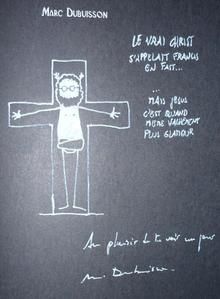 MARC DUBUISSON
LE VRAI CHRIST
S'APPELAIT FRANCIS
EN FAIT...
... MAIS JÉSUS
C'EST QUAND
MÊME VACHEMENT
PLUS GLAMOUR
Au plaisir de te voir un jour
M. Dubuisson